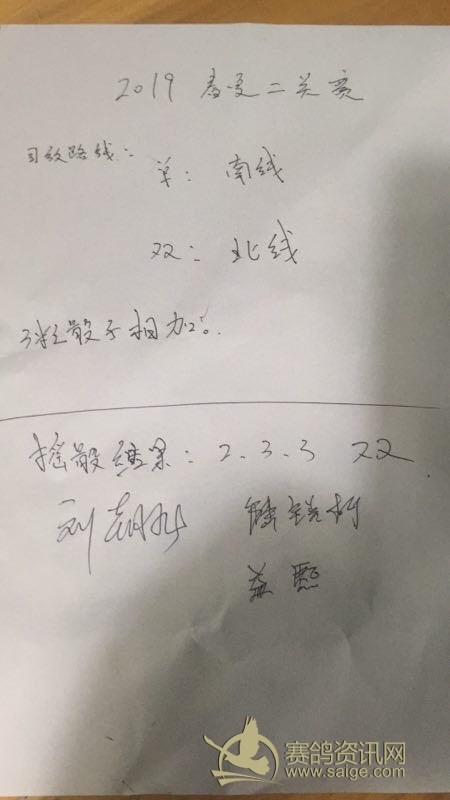 2019 春夏二关赛
司放路线：
单： 南线
双： 北线
3粒骰子相加。
摇骰结果：2.3.3 双
刘
赛鸽资讯网
www.saige.com